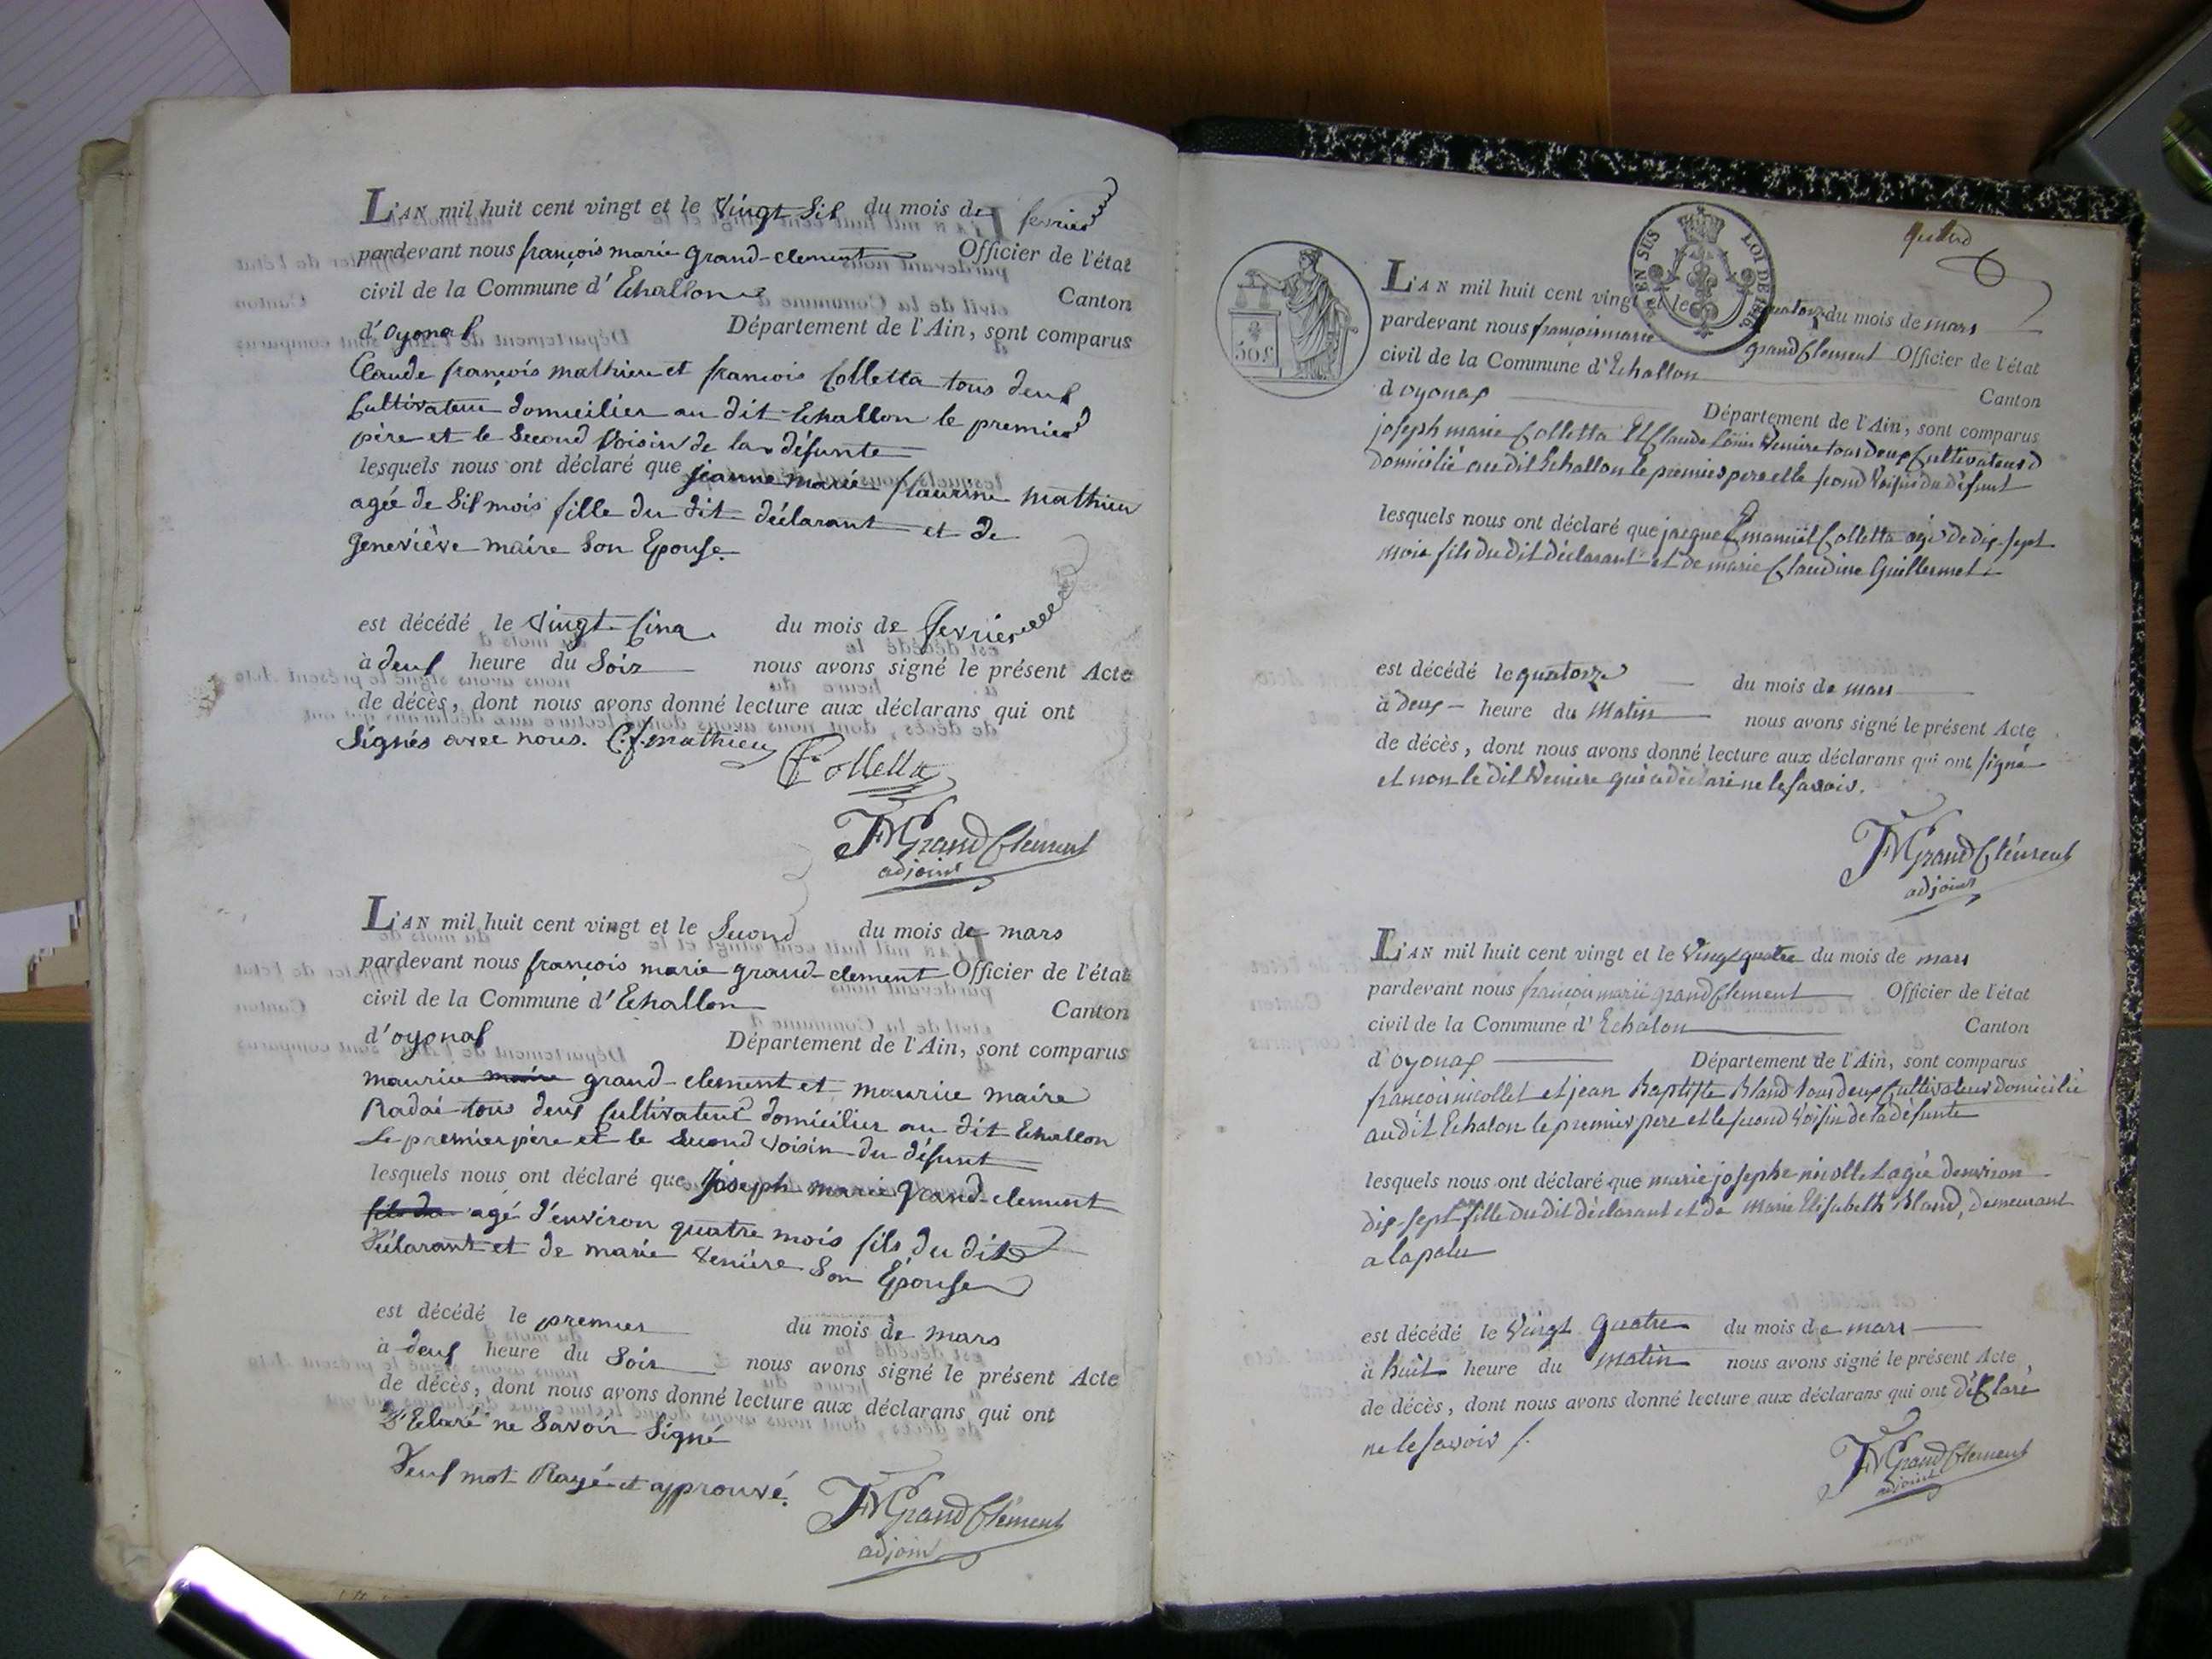 L'AN mil huit cent vingt et le Vingt Six du mois de fevrier
pardevant nous françois marie grand-clement Officier de l'état
civil de la Commune d'Echallon Canton
d'oyonax Département de l'Ain, sont comparus
Claude françois mathieu et francois Colletta tous deux
Cultivateur domicilier au dit Echallon le premier
père et le Second Voisin de la défunte
lesquels nous ont déclaré que jeanne marie flaurine Mathieu
agée de Six mois fille du dit déclarant et de
Geneviève maire Son Epouse.
est décédé le Vingt Cinq du mois de fevrier
à deux heure du Soir nous avons signé le présent Acte
de décès, dont nous avons donné lecture aux déclarans qui ont
Signés avec nous. C. f. mathieu
Colletta
FM Grand Clément
adjoint
L'AN mil huit cent vingt et le Second du mois de mars
pardevant nous françois marie grand-clement Officier de l'état
civil de la Commune d'Echallon Canton
d'oyonax Département de l'Ain, sont comparus
maurice maire grand-clement et maurice maire
Radai tous deux Cultivateur domicilier au dit Echallon
Le premier père et le Second Voisin du défunt
lesquels nous ont déclaré que Joseph marie Grand-clement
fils du agé d'environ quatre mois fils du dit
Déclarant et de marie Veniere Son Epouse
est décédé le premier du mois de mars
à deux heure du Soir nous avons signé le présent Acte
de décès, dont nous avons donné lecture aux déclarans qui ont
D'Eclaré ne Savoir Signé
Deux mot Rayé et approuvé.
FM Grand Clément
adjoint
EN SUS LOI DE 1816
50c
L'AN mil huit cent vingt et le quatorze du mois de mars
pardevant nous francois marie grand Clement Officier de l'état
civil de la Commune d'Echallon Canton
d'oyonax Département de l'Ain, sont comparus
joseph marie Colletta Et Claude Louis Veniere tous deux Cultivateurs
domicilié au dit Echallon le premier pere et le second Voisin du défunt
lesquels nous ont déclaré que jacque Emanuël Colletta agé de dix-sept
mois fils du dit déclarant et de marie Claudine Guillermet
est décédé le quatorze du mois de mars
à deux heure du Matin nous avons signé le présent Acte
de décès, dont nous avons donné lecture aux déclarans qui ont signé
et non le dit Veniere qui a déclaré ne le savoir.
FM Grand Clément
adjoint
L'AN mil huit cent vingt et le Vingt quatre du mois de mars
pardevant nous francois marie grand Clement Officier de l'état
civil de la Commune d'Echalon Canton
d'oyonax Département de l'Ain, sont comparus
francois nicollet et jean Baptiste Bland tous deux Cultivateur domicilié
au dit Echalon le premier pere et le second Voisin de la défunte
lesquels nous ont déclaré que marie josephe nicollet agée denviron
dix-sept fille du dit déclarant et de Marie Elisabeth Bland, demeurant
a lapalu
est décédé le Vingt Quatre du mois de mars
à huit heure du Matin nous avons signé le présent Acte,
de décès, dont nous avons donné lecture aux déclarans qui ont déClaré
ne le savoir f.
FM Grand Clement
adjoint